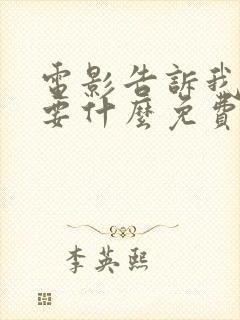 電影告訴我
要什麼免費
李英熙